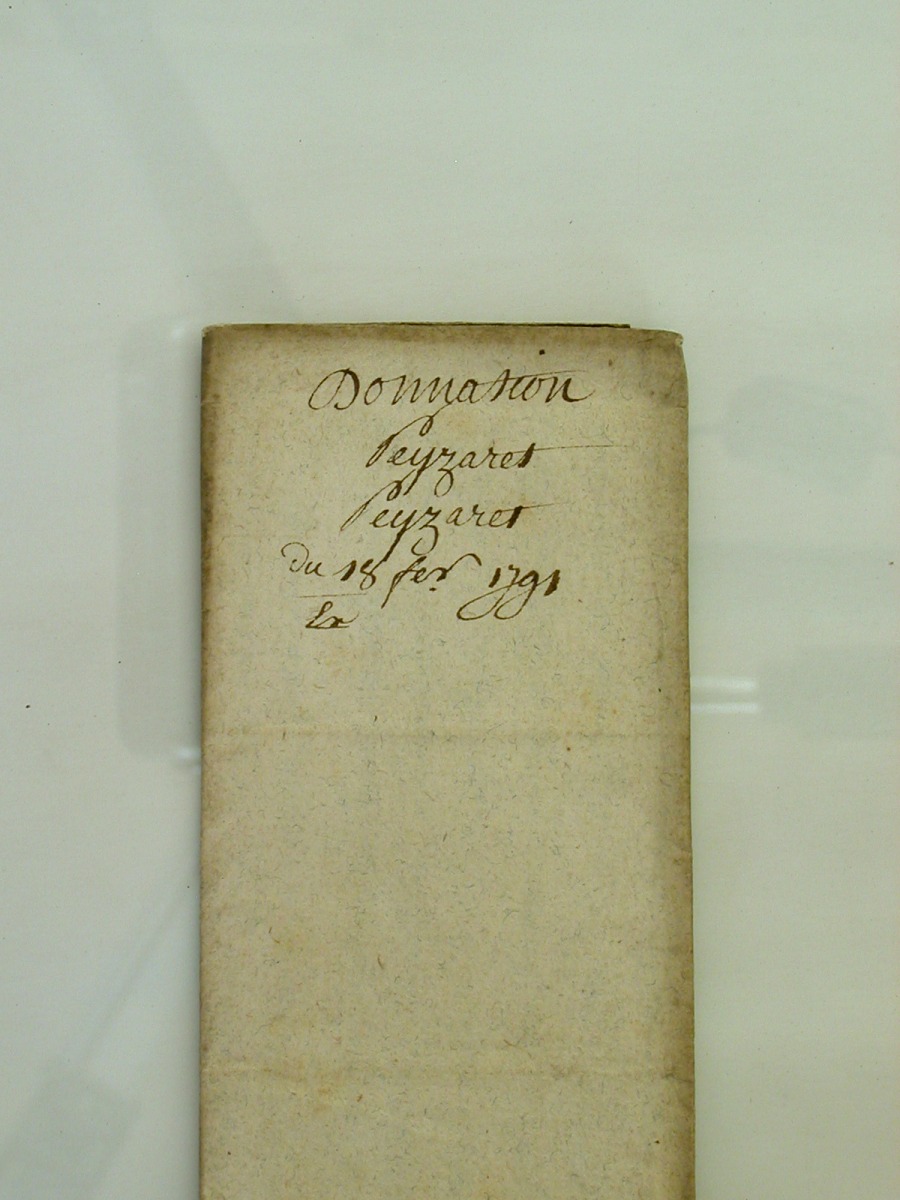 Donnation
Peyzaret
Peyzaret
du 18 fer 1791